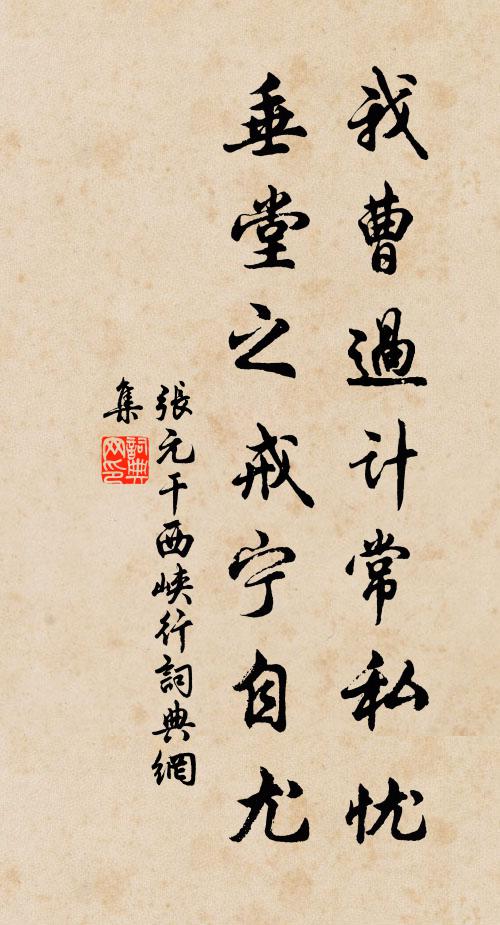 我曹過计常私忧
垂堂之戒宁自尤
張元干西峽行詞典網
集
詞典
网印